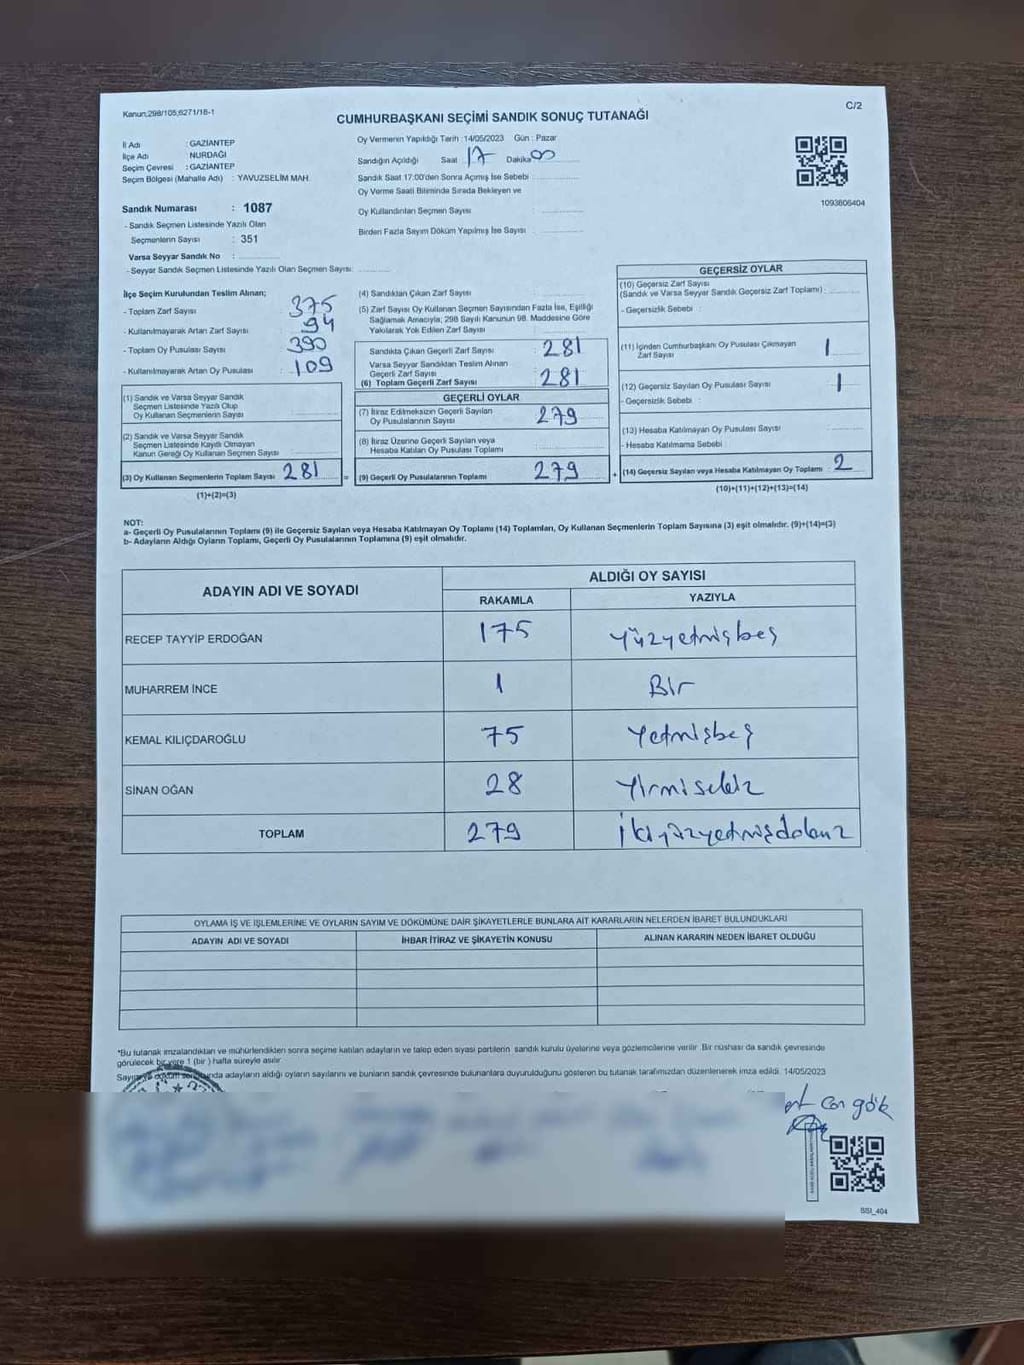 Kanun:298/105;6271/18-1
C/2
CUMHURBAŞKANI SEÇİMİ SANDIK SONUÇ TUTANAĞI
İl Adı : GAZİANTEP
İlçe Adı : NURDAĞI
Seçim Çevresi : GAZİANTEP
Seçim Bölgesi (Mahalle Adı) : YAVUZSELİM MAH.
Sandık Numarası : 1087
- Sandık Seçmen Listesinde Yazılı Olan
Seçmenlerin Sayısı : 351
Varsa Seyyar Sandık No :
- Seyyar Sandık Seçmen Listesinde Yazılı Olan Seçmen Sayısı:
Oy Vermenin Yapıldığı Tarih :14/05/2023 Gün : Pazar
Sandığın Açıldığı Saat 17 Dakika 00
Sandık Saat 17:00'den Sonra Açımış İse Sebebi :
Oy Verme Saati Bitiminde Sırada Bekleyen ve
Oy Kullandırılan Seçmen Sayısı :
Birden Fazla Sayım Döküm Yapılmış İse Sayısı :
1093606404
İlçe Seçim Kurulundan Teslim Alınan;
- Toplam Zarf Sayısı : 375
- Kullanılmayarak Artan Zarf Sayısı : 94
- Toplam Oy Pusulası Sayısı : 390
- Kullanılmayarak Artan Oy Pusulası : 109
(1) Sandık ve Varsa Seyyar Sandık
Seçmen Listesinde Yazılı Olup
Oy Kullanan Seçmenlerin Sayısı :
(2) Sandık ve Varsa Seyyar Sandık
Seçmen Listesinde Kayıtlı Olmayan
Kanun Gereği Oy Kullanan Seçmen Sayısı :
(3) Oy Kullanan Seçmenlerin Toplam Sayısı : 281
(1)+(2)=(3)
(4) Sandıktan Çıkan Zarf Sayısı :
(5) Zarf Sayısı Oy Kullanan Seçmen Sayısından Fazla İse, Eşitliği
Sağlamak Amacıyla; 298 Sayılı Kanunun 98. Maddesine Göre
Yakılarak Yok Edilen Zarf Sayısı :
Sandıkta Çıkan Geçerli Zarf Sayısı : 281
Varsa Seyyar Sandıktan Teslim Alınan
Geçerli Zarf Sayısı :
(6) Toplam Geçerli Zarf Sayısı : 281
GEÇERLİ OYLAR
(7) İtiraz Edilmeksizin Geçerli Sayılan
Oy Pusulalarının Sayısı : 279
(8) İtiraz Üzerine Geçerli Sayılan veya
Hesaba Katılan Oy Pusulası Toplamı :
= (9) Geçerli Oy Pusulalarının Toplamı : 279
GEÇERSİZ OYLAR
(10) Geçersiz Zarf Sayısı
(Sandık ve Varsa Seyyar Sandık Geçersiz Zarf Toplamı) :
- Geçersizlik Sebebi :
(11) İçinden Cumhurbaşkanı Oy Pusulası Çıkmayan
Zarf Sayısı : 1
(12) Geçersiz Sayılan Oy Pusulası Sayısı : 1
- Geçersizlik Sebebi :
(13) Hesaba Katılmayan Oy Pusulası Sayısı :
- Hesaba Katılmama Sebebi :
+ (14) Geçersiz Sayılan veya Hesaba Katılmayan Oy Toplamı : 2
(10)+(11)+(12)+(13)=(14)
NOT:
a- Geçerli Oy Pusulalarının Toplamı (9) ile Geçersiz Sayılan veya Hesaba Katılmayan Oy Toplamı (14) Toplamları, Oy Kullanan Seçmenlerin Toplam Sayısına (3) eşit olmalıdır. (9)+(14)=(3)
b- Adayların Aldığı Oyların Toplamı, Geçerli Oy Pusulalarının Toplamına (9) eşit olmalıdır.
ADAYIN ADI VE SOYADI ALDIĞI OY SAYISI
RAKAMLA YAZIYLA
RECEP TAYYİP ERDOĞAN 175 Yüzyetmişbeş
MUHARREM İNCE 1 Bir
KEMAL KILIÇDAROĞLU 75 Yetmişbeş
SİNAN OĞAN 28 Yirmisekiz
TOPLAM 279 İkiyüzyetmişdokuz
OYLAMA İŞ VE İŞLEMLERİNE VE OYLARIN SAYIM VE DÖKÜMÜNE DAİR ŞİKAYETLERLE BUNLARA AİT KARARLARIN NELERDEN İBARET BULUNDUKLARI
ADAYIN ADI VE SOYADI İHBAR İTİRAZ VE ŞİKAYETİN KONUSU ALINAN KARARIN NEDEN İBARET OLDUĞU
*Bu tutanak imzalandıktan ve mühürlendikten sonra seçime katılan adayların ve talep eden siyasi partilerin sandık kurulu üyelerine veya gözlemcilerine verilir. Bir nüshası da sandık çevresinde
görülecek bir yere 1 (bir ) hafta süreyle asılır.
adayların aldığı oyların sayılarını ve bunların sandık çevresinde bulunanlara duyurulduğunu gösteren bu tutanak tarafımızdan düzenlenerek imza edildi. 14/05/2023
BSI_404